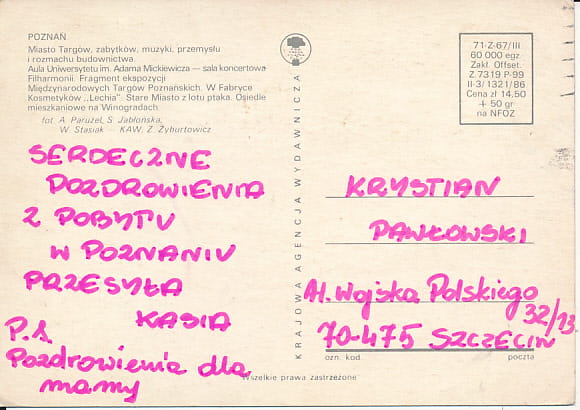 POZNAŃ
Miasto Targów, zabytków, muzyki, przemysłu
i rozmachu budownictwa.
Aula Uniwersytetu im. Adama Mickiewicza — sala koncertowa
Filharmonii. Fragment ekspozycji
Międzynarodowych Targów Poznańskich. W Fabryce
Kosmetyków „Lechia". Stare Miasto z lotu ptaka. Osiedle
mieszkaniowe na Winogradach
fot. A. Parużel, S. Jabłońska,
W. Stasiak — KAW. Z. Żyburtowicz
SERDECZNE
POZDROWIENIA
Z POBYTU
W POZNANIU
PRZESYŁA
KASIA
P.S.
Pozdrowienia dla
mamy
KRAJOWA AGENCJA WYDAWNICZA
71-Z-67/III
60 000 egz.
Zakł. Offset.
Z 7319 P-99
II-3/1321/86
Cena zł 14,50
+ 50 gr
na NFOZ
KRYSTIAN
PAWŁOWSKI
Al. Wojska Polskiego
32/13
70-475 SZCZECIN
ozn. kod. poczta
Wszelkie prawa zastrzeżone